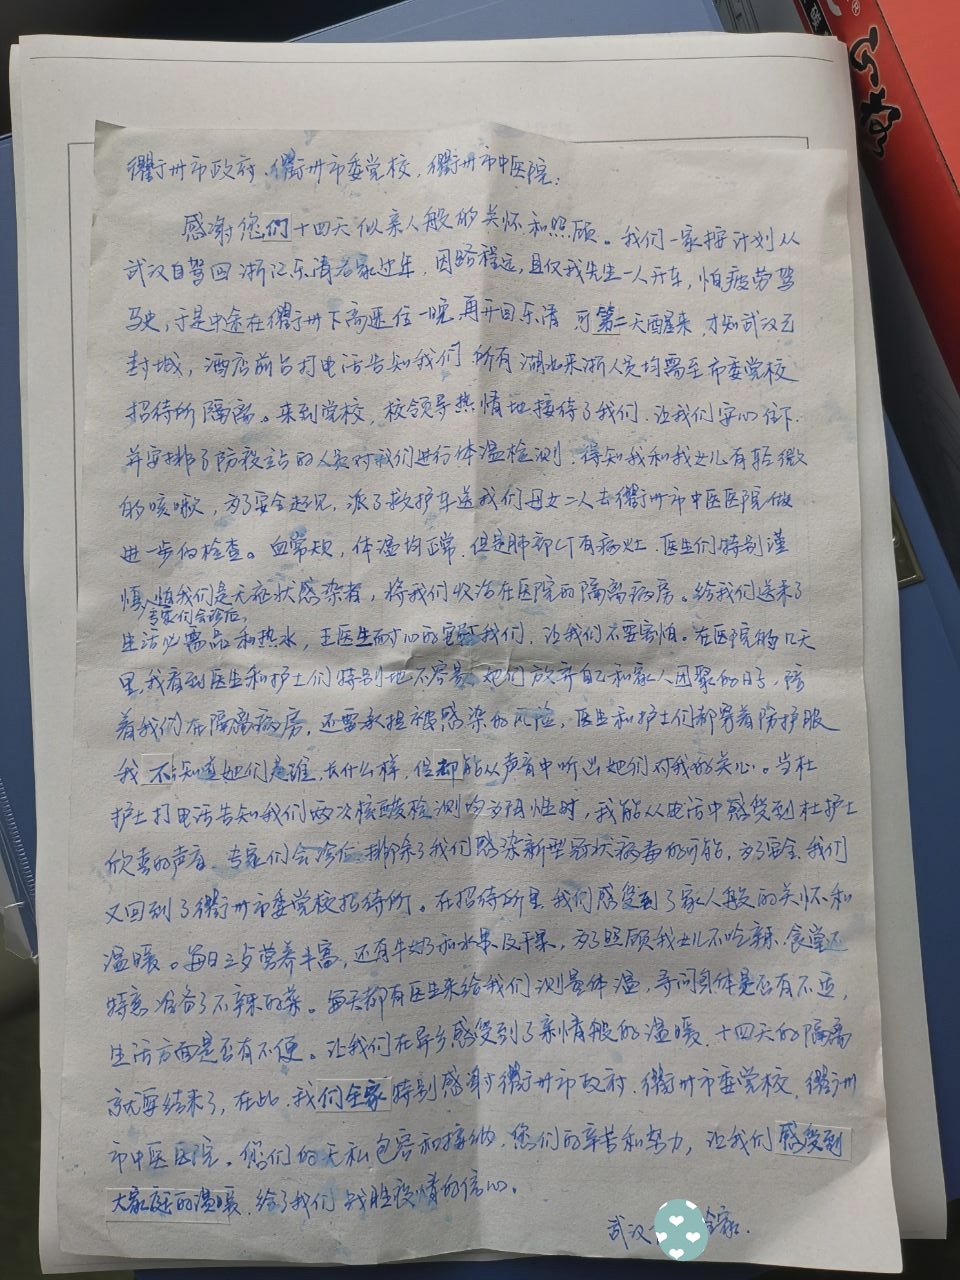 衢州市政府、衢州市委党校、衢州市中医院:
感谢您们十四天似亲人般的关怀和照顾。我们一家按计划从
武汉自驾回浙江乐清老家过年，因路程远，且仅我先生一人开车，怕疲劳驾
驶，于是中途在衢州下高速住一晚，再开回乐清，可第二天醒来，才知武汉已
封城，酒店前台打电话告知我们所有湖北来浙人员均需至市委党校
招待所隔离。来到党校，校领导热情地接待了我们，让我们安心住下.
并安排了防疫站的人员对我们进行体温检测，得知我和我女儿有轻微
的咳嗽，为了安全起见，派了救护车送我们母女二人去衢州市中医医院做
进一步的检查。血常规，体温均正常，但是肺部CT有病灶，医生们特别谨
慎，怕我们是无症状感染者，将我们收治在医院的隔离病房。给我们送来了
专家们会诊后，
生活必需品和热水，王医生耐心的安慰我们，让我们不要害怕。在医院的几天
里，我看到医生和护士们特别地不容易，她们放弃自己和家人团聚的日子，陪
着我们在隔离病房，还要承担被感染的风险，医生和护士们都穿着防护服
我不知道她们是谁，长什么样，但却能从声音中听出她们对我的关心。当杜
护士打电话告知我们两次核酸检测均为阴性时，我能从电话中感受到杜护士
欣喜的声音，专家们会诊后排除了我们感染新型冠状病毒的可能，为了安全，我们
又回到了衢州市委党校招待所。在招待所里我们感受到了家人般的关怀和
温暖。每日三餐营养丰富，还有牛奶和水果及干果，为了照顾我女儿不吃辣，食堂还
特意准备了不辣的菜。每天都有医生来给我们测量体温，寻问身体是否有不适，
生活方面是否有不便。让我们在异乡感受到了亲情般的温暖，十四天的隔离
就要结束了，在此，我们全家特别感谢衢州市政府，衢州市委党校，衢州
市中医医院。您们的无私包容和接纳，您们的辛苦和努力，让我们感受到
大家庭的温暖，给了我们战胜疫情的信心。
武汉 全家.